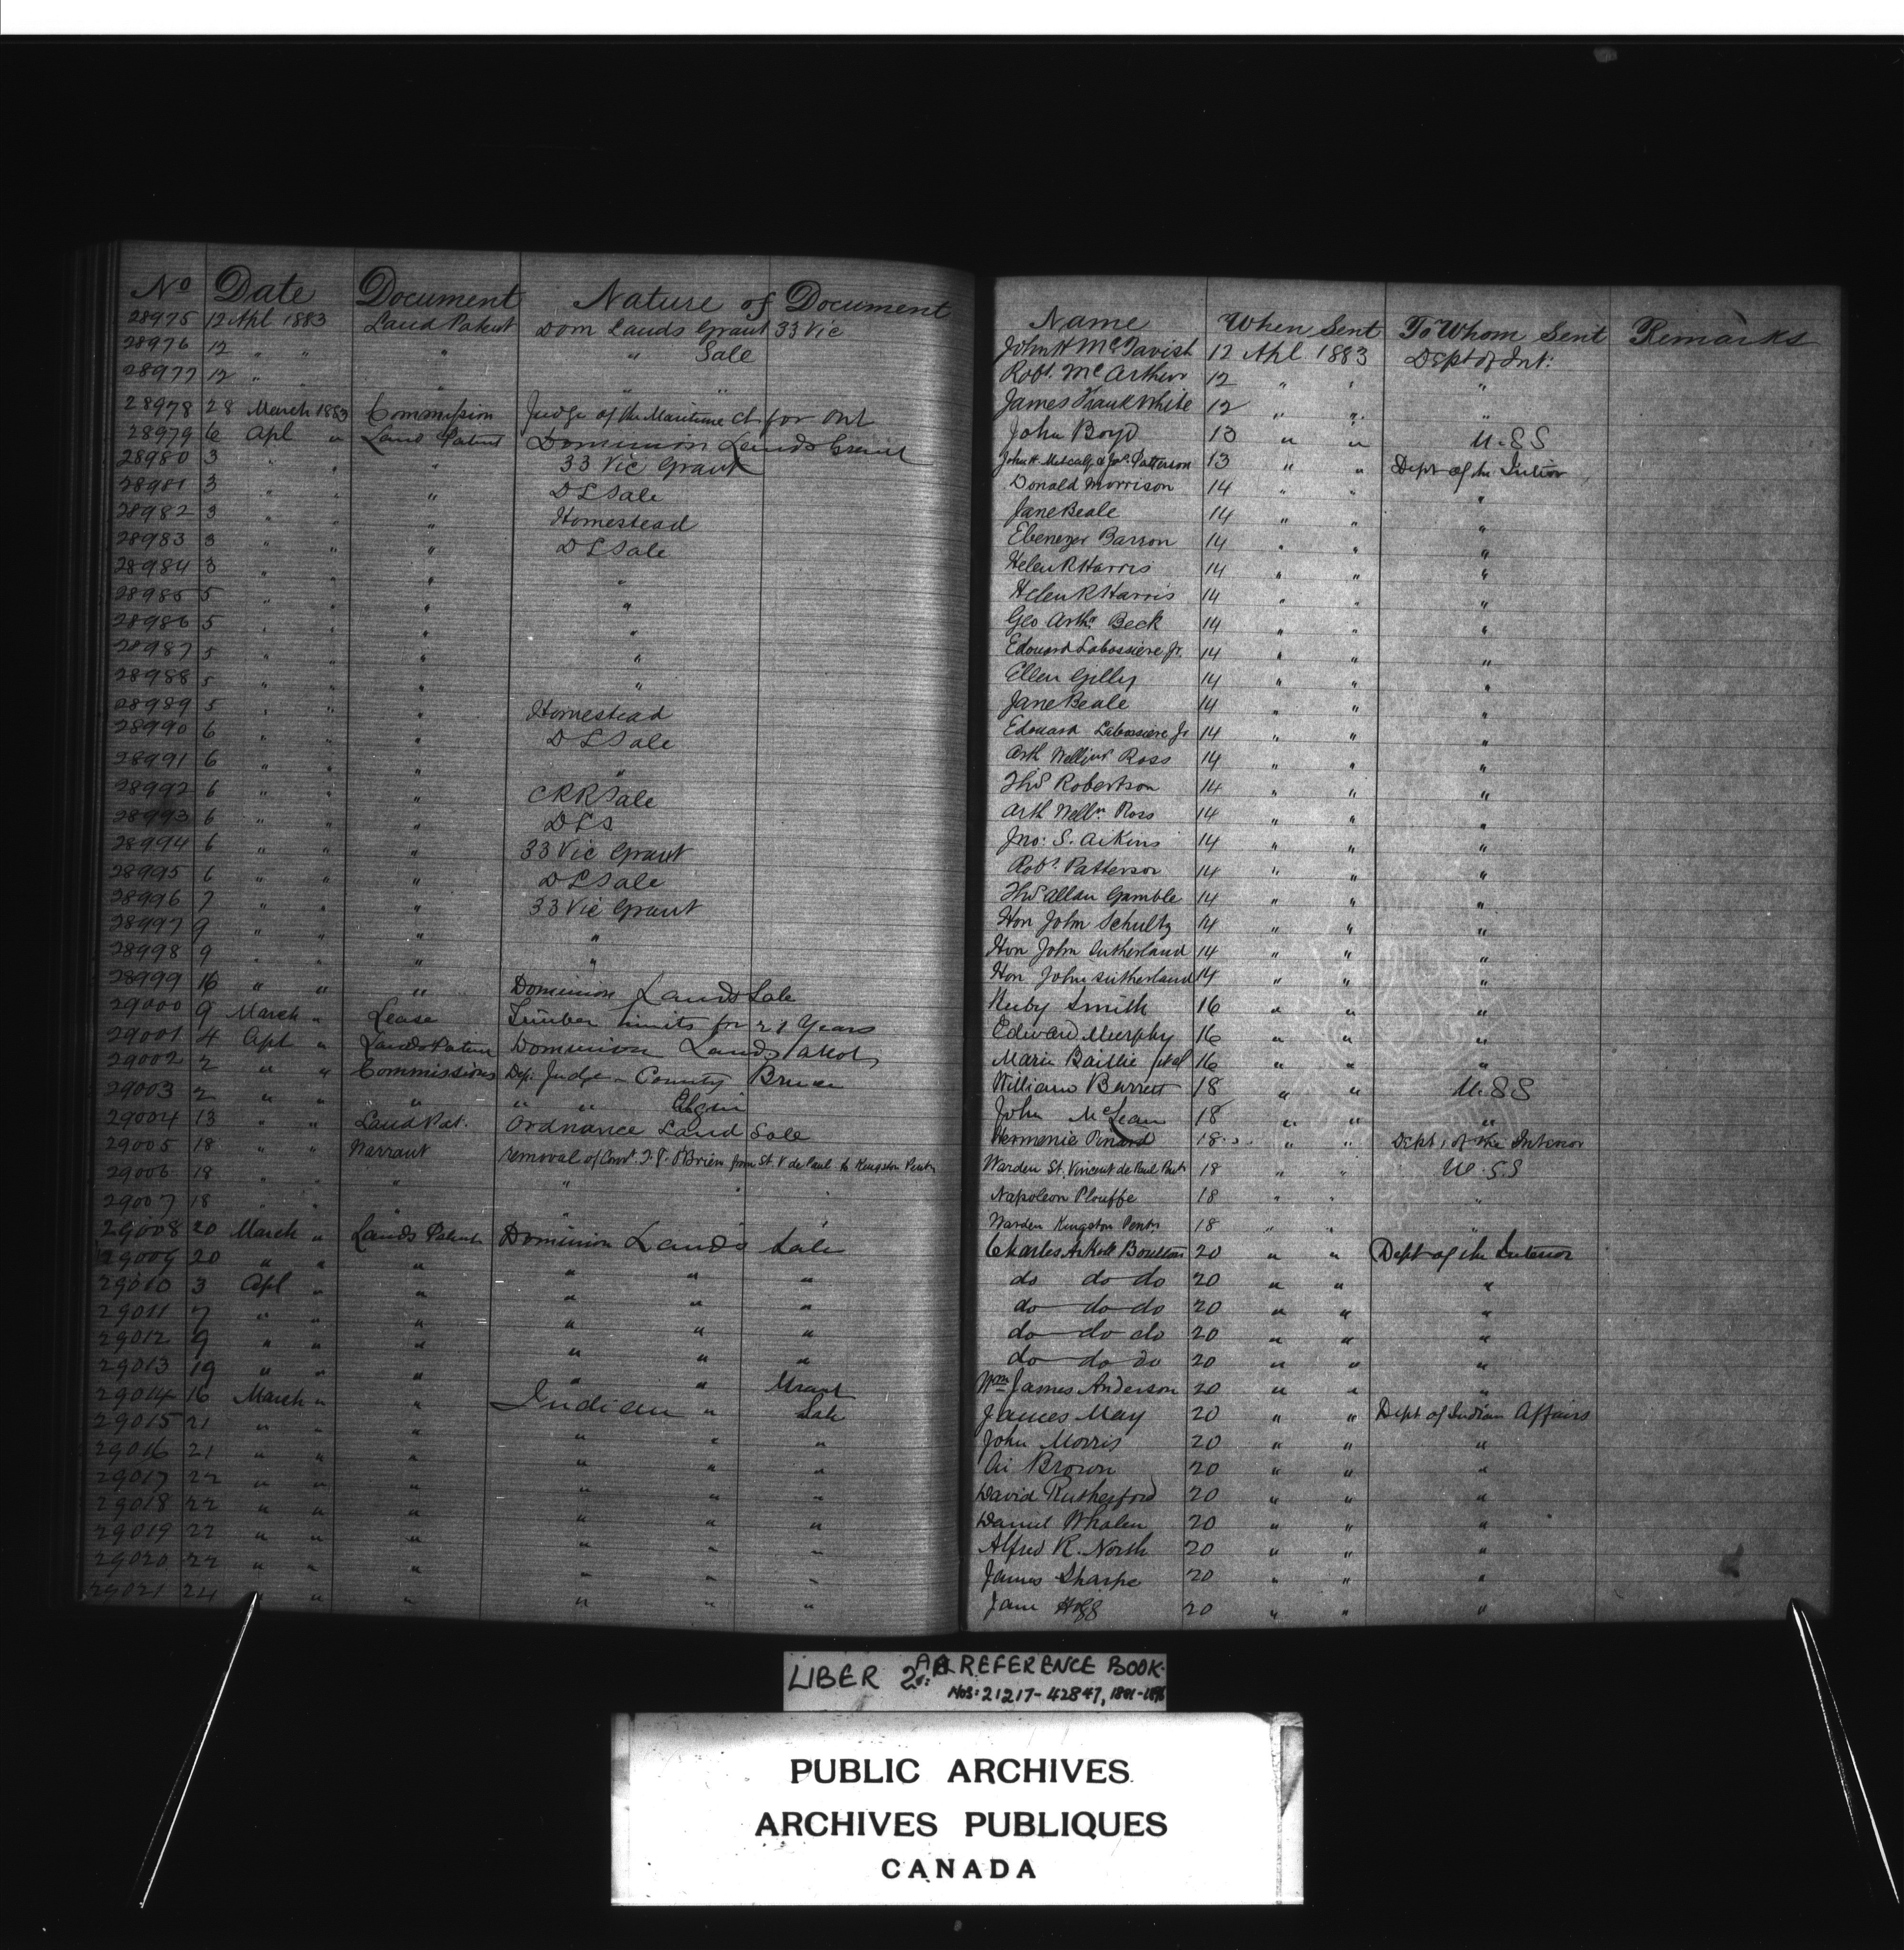 No Date Document Nature of Document Name When Sent To Whom Sent Remarks
28975 12 Apl 1883 Land Patent Dom Lands Grant 33 Vic John H McTavish 12 Apl 1883 Dept of Int:
28976 12 " " " " Sale Robt. McArthur 12 " " "
28977 12 " " " " " James Frank White 12 " " "
28978 28 March 1883 Commission Judge of the Maritime Ct. for Ont John Boyd 13 " " U.SS
28979 6 Apl " Land Patent Dominion Lands Grant John H. Metcalf & Patterson 13 " " Dept of the
28980 3 " " " 33 Vic Grant Donald Morrison 14 " " "
28981 3 " " " D L Sale Jane Beale 14 " " "
28982 3 " " " Homestead Ebenezer Barron 14 " " "
28983 3 " " " D L Sale Helen R Harris 14 " " "
28984 3 " " " " Helen R Harris 14 " " "
28985 5 " " " " Geo Arthr Beck 14 " " "
28986 5 " " " " Edouard Labossiere Jr. 14 " " "
28987 5 " " " " Ellen Gilly 14 " " "
28988 5 " " " " Jane Beale 14 " " "
28989 5 " " " Homestead Edouard Labossiere Jr 14 " " "
28990 6 " " " D L Sale Arth Ross 14 " " "
28991 6 " " " " Thos Robertson 14 " " "
28992 6 " " " CRR Sale Arth Ross 14 " " "
28993 6 " " " D L S Jno: S. Aikins 14 " " "
28994 6 " " " 33 Vic Grant Robt. Patterson 14 " " "
28995 6 " " " D L Sale Thos Allan Gamble 14 " " "
28996 7 " " " 33 Vic Grant Hon John Schultz 14 " " "
28997 9 " " " " Hon John Sutherland 14 " " "
28998 9 " " " " Hon John Sutherland 14 " " "
28999 16 " " " Dominion Lands Sale Ruby Smith 16 " " "
29000 9 March " Lease Timber limits for 21 Years Edward Murphy 16 " " "
29001 4 Apl " Lands Patent Dominion Lands Marie Baillie et al 16 " " "
29002 2 " " Commissions Dep. Judge - County Bruce William Barrett 18 " " U.SS
29003 2 " " " " " Elgin John McLean 18 " " "
29004 13 " " Land Pat. Ordnance Land Sale Hermenie Pinard 18 " " Dept. of the Interior
29005 18 " " Warrant removal of Conv. J. T. O'Brien from St. V de Paul to Kingston Penty Warden St. Vincent de Paul Penty 18 " " U.SS
29006 18 " " " " Napoleon Plouffe 18 " " "
29007 18 " " " " Warden Kingston Penty 18 " " "
29008 20 March " Lands Patent Dominion Lands Sale Charles Arkoll Boulton 20 " " Dept of the Interior
29009 20 " " " " " " do do do 20 " " "
29010 3 Apl " " " " " do do do 20 " " "
29011 7 " " " " " " do do do 20 " " "
29012 9 " " " " " " do do do 20 " " "
29013 19 " " " " " Grant Wm James Anderson 20 " " "
29014 16 March " " Indian " Sale James May 20 " " Dept of Indian Affairs
29015 21 " " " " " " John Morris 20 " " "
29016 21 " " " " " " Ai Brown 20 " " "
29017 22 " " " " " " David Rutherford 20 " " "
29018 22 " " " " " " Daniel Whalen 20 " " "
29019 22 " " " " " " Alfred R. North 20 " " "
29020 22 " " " " " " James Sharpe 20 " " "
29021 24 " " " " " " Jane Hogg 20 " " "
LIBER 2A: REFERENCE BOOK.
NOS: 21217-42847, 1881-1896
PUBLIC ARCHIVES
ARCHIVES PUBLIQUES
CANADA